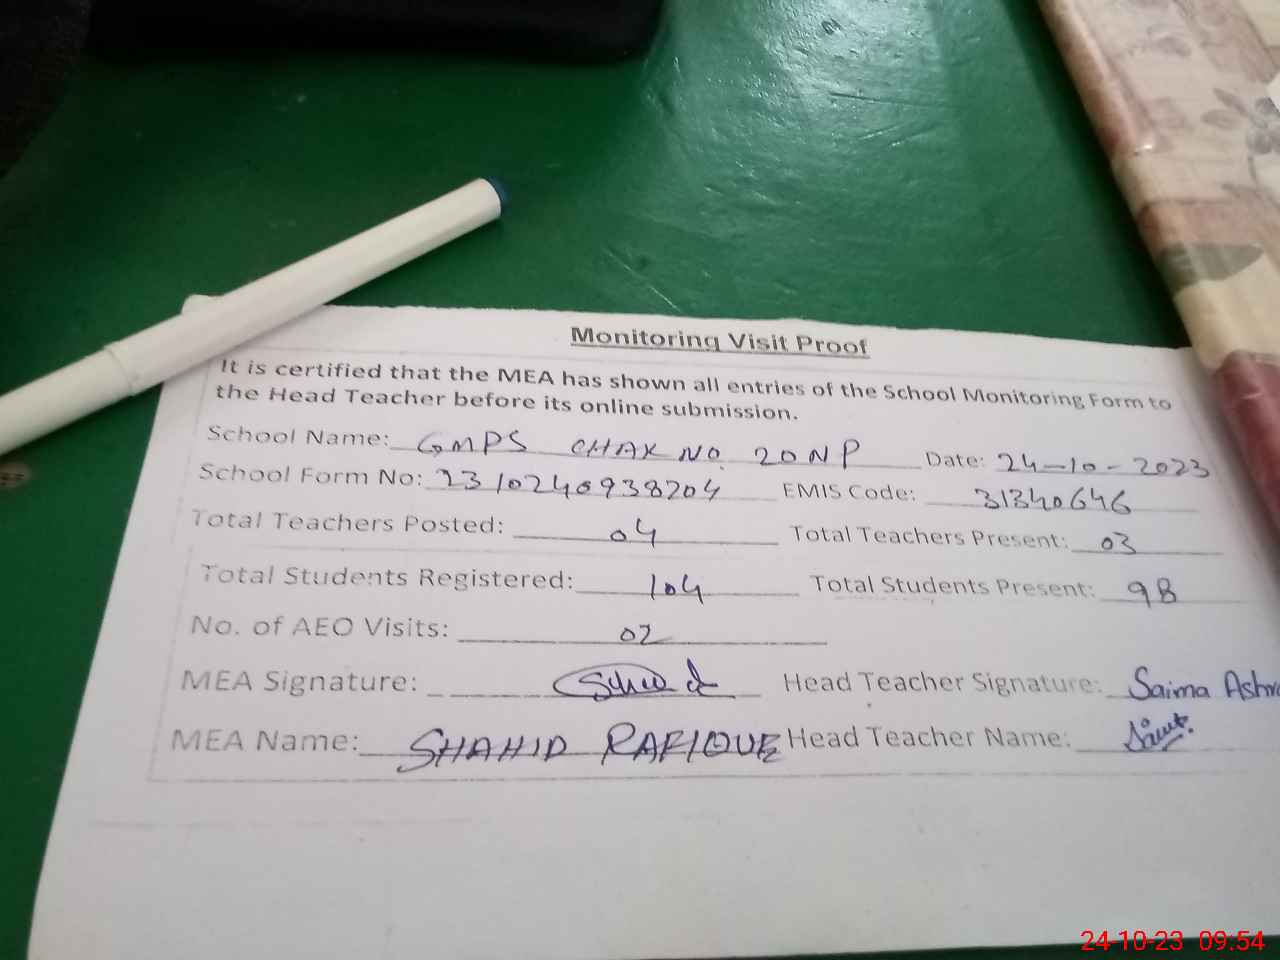 Monitoring Visit Proof
It is certified that the MEA has shown all entries of the School Monitoring Form to
the Head Teacher before its online submission.
School Name: GMPS CHAK NO. 20NP Date: 24-10-2023
School Form No: 2310240938204 EMIS Code: 31340646
Total Teachers Posted: 04 Total Teachers Present: 03
Total Students Registered: 104 Total Students Present: 98
No. of AEO Visits: 02
MEA Signature: Head Teacher Signature: Saima
MEA Name: SHAHID RAFIQUE Head Teacher Name:
24-10-23 09:54